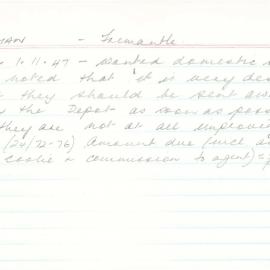 MAN - Fremantle.
1.11.47 - wanted domestic
noted that it is very
they should be sent
the Depot as soon as
they are not at all
(24/72-76) Amount due (incl
cooke & commission to agent) =